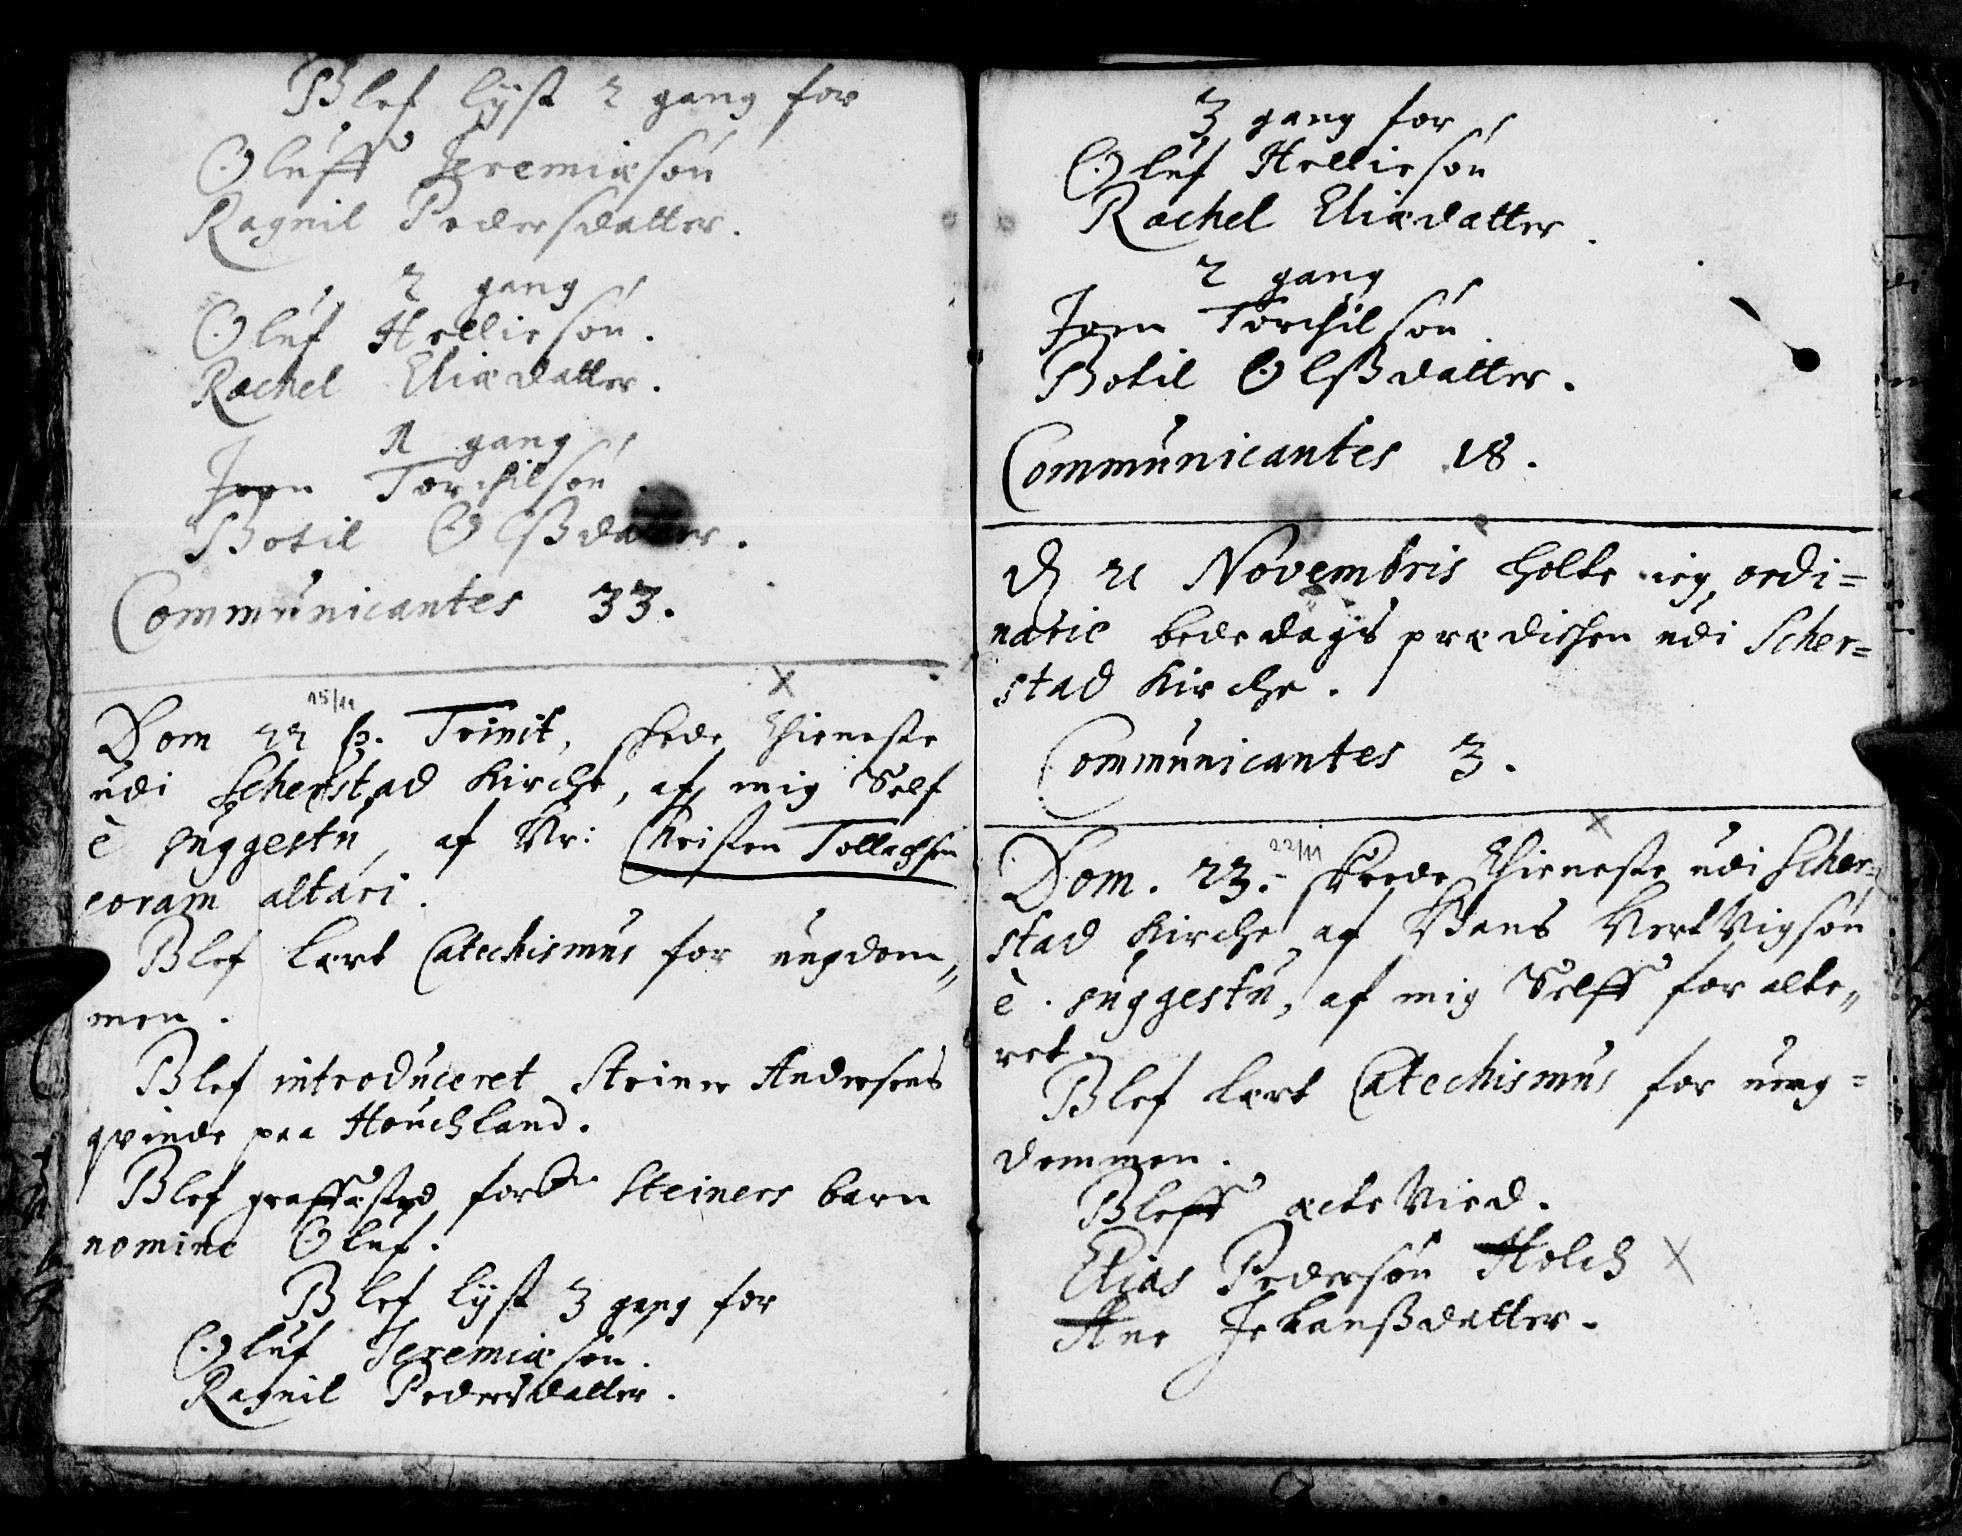 Blef lyst 2 gang for
Oluff Jeremiæsøn
Ragnil Pedersdatter.
2 gang
Oluf Helliesøn.
Rachel Eliædatter.
1 gang
Joen Torchilsøn.
Botil Olsßdatter.
Communicantes 33.
15/11
Dom 22 p. Trinit, skede Thieneste
udi Scherstad Kirche, af mig Self
è suggestu, af Hr: Christen Tollachsen
coram altari.
Blef lært Catechismus for ungdom„
men.
Blef introduceret Steiner Andersens
qvinde paa Houchland.
Blef graffæsted forbte Steiners barn
nomine Oluf.
Blef lyst 3 gang for
Oluf Jeremiæsøn.
Ragnil Pedersdatter.
3 gang for
Oluf Helliesøn
Rachel Eliædatter.
2 gang
Joen Torchilsøn
Botil Olsßdatter.
Communicantes 18.
D 21 Novembris holte ieg ordi=
narie bededags prædichen udi Scher=
stad Kirche.
Communicantes 3.
22/11
Dom. 23. skeede Thieneste udi Scher=
stad Kirche af Hans HertVigsøn
è suggestu, af mig Selff for alte„
ret.
Blef lært Catechismus for ung=
dommen.
Bleff ecte Vied.
Elias Pedersøn Holch
Ane Johanßdatter.